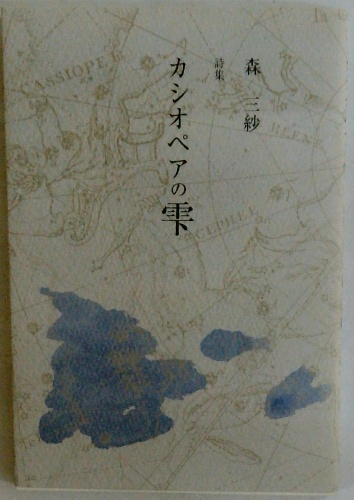 森 三紗
詩集
カシオペアの雫
CASSIOPE
CEPHEE